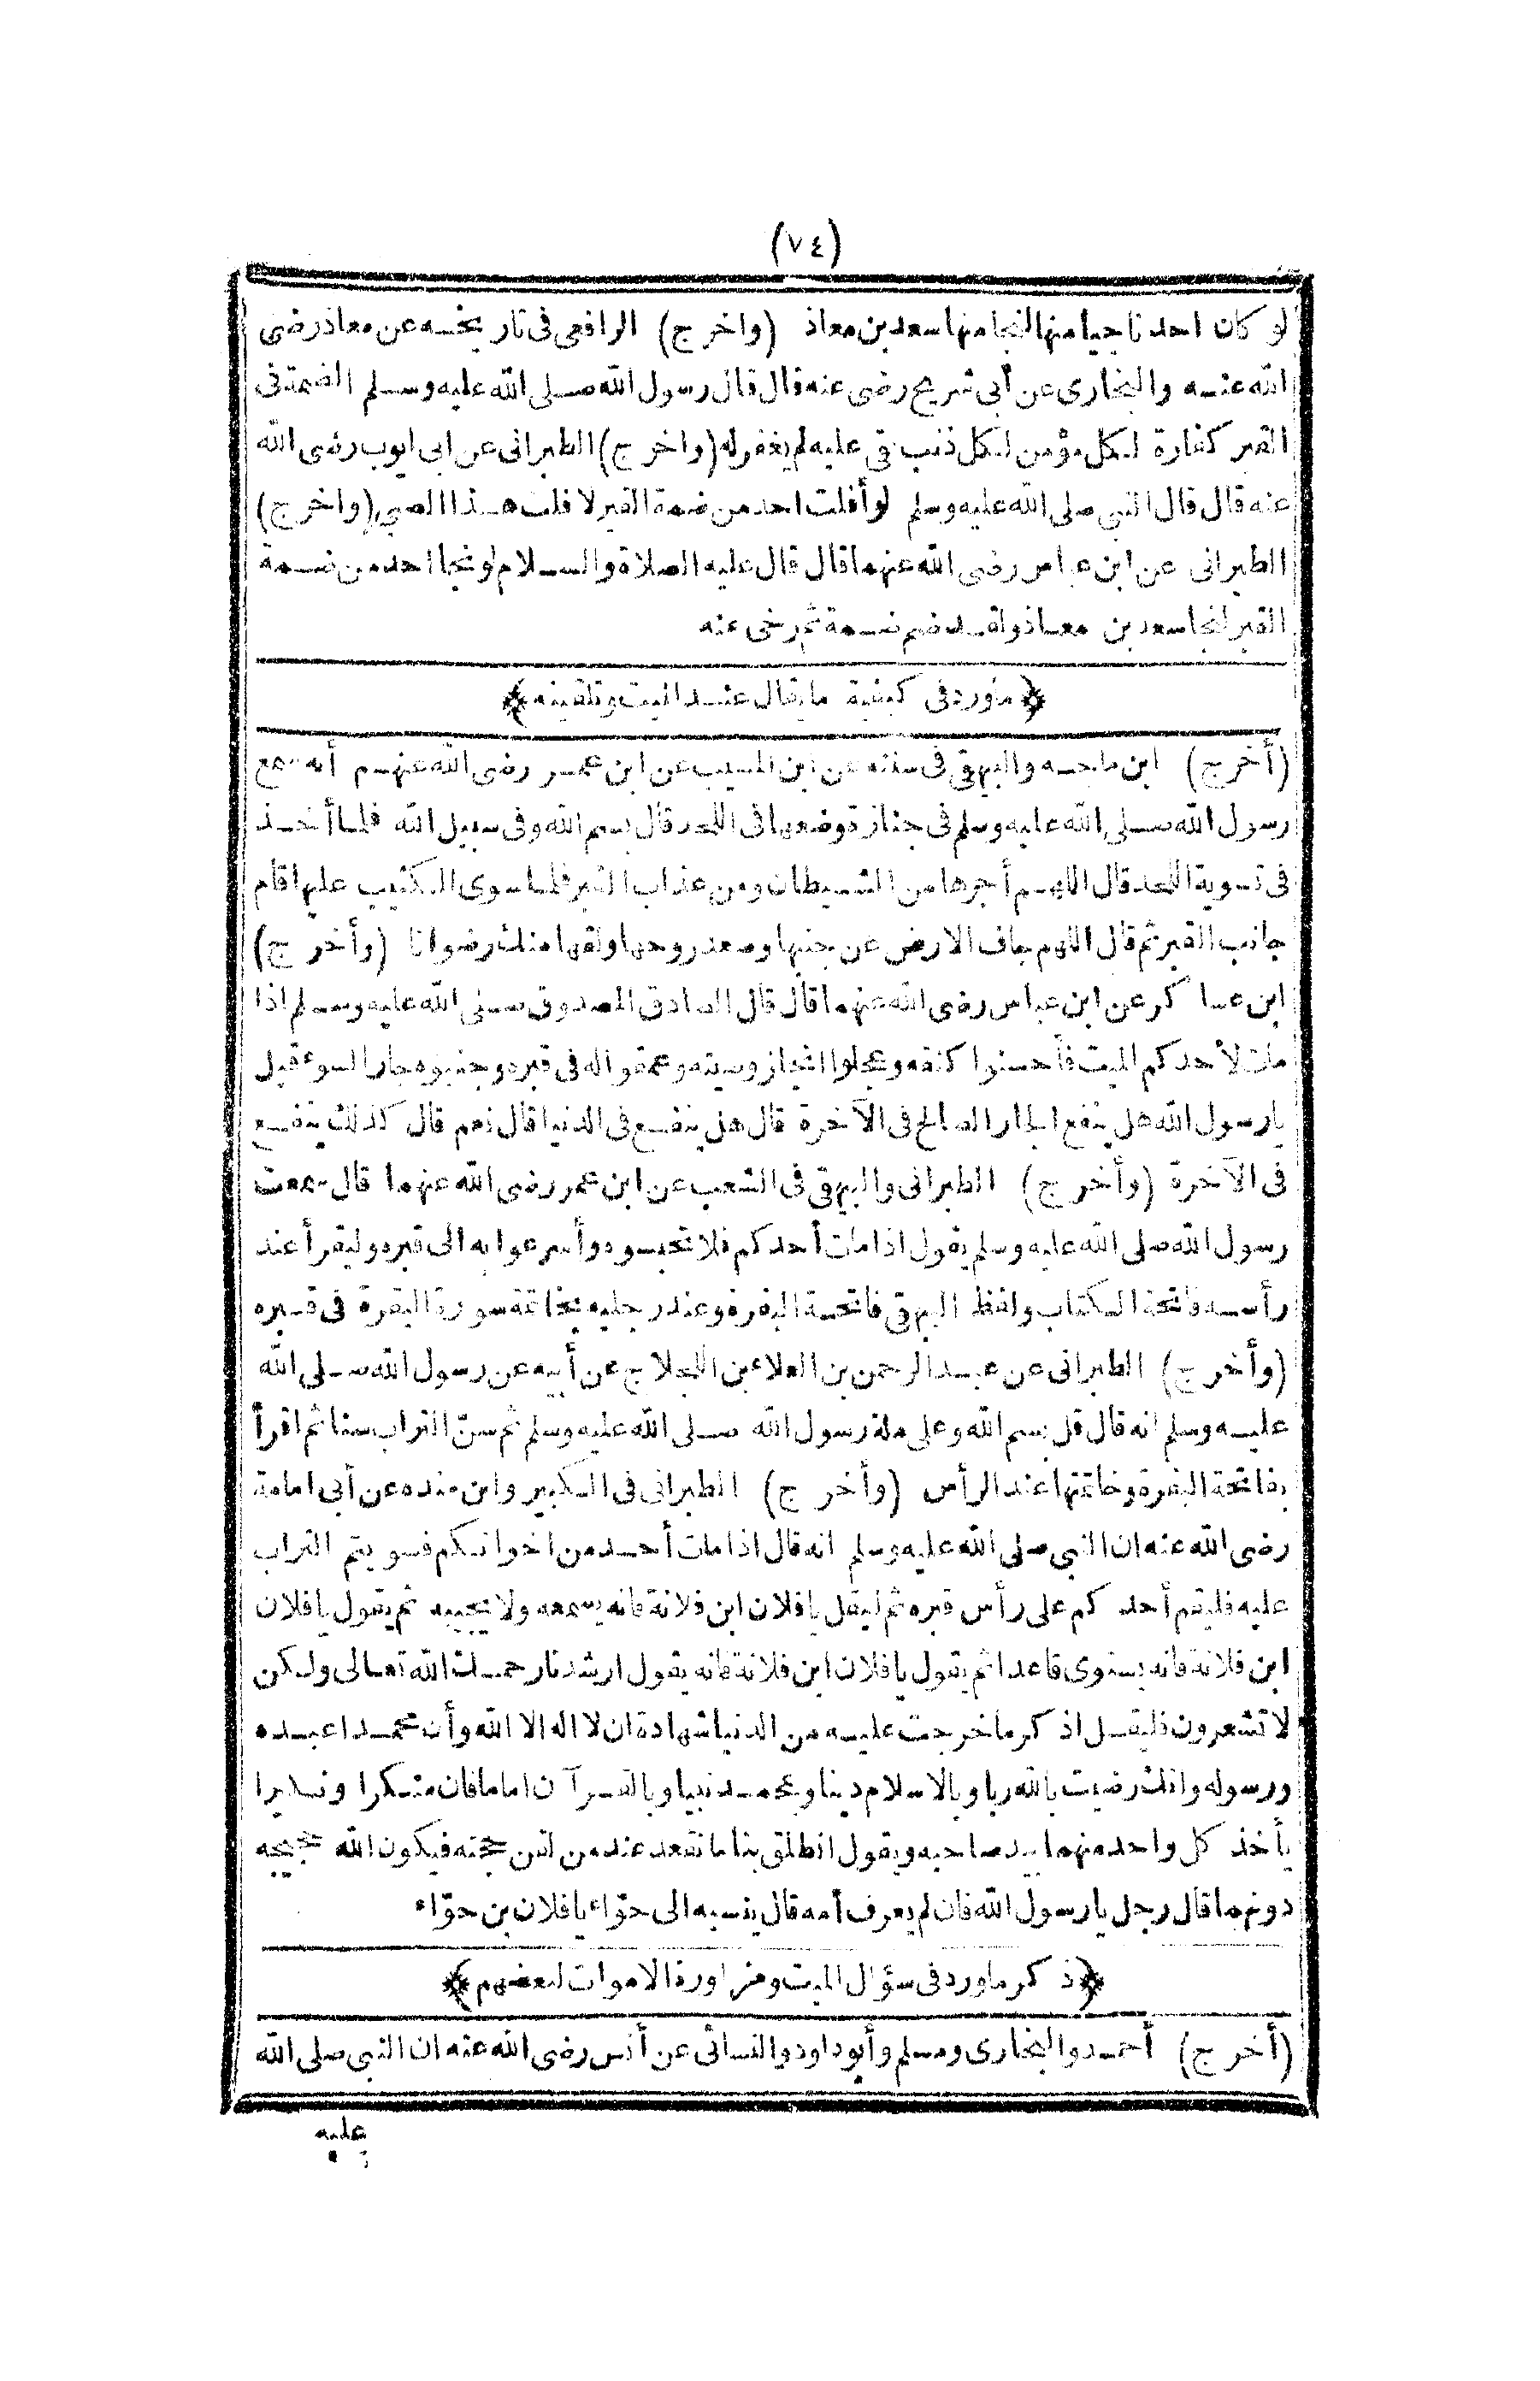 (٧٤)
لو كان احد ناجيا منها لنجا منها سعد بن معاذ (واخرج) الرافعى فى تاريخه عن معاذ رضى
الله عنه والبخارى عن أبى شريح رضى عنه قال قال رسول الله صلى الله عليه وسلم الضمة فى
القبر كفارة لكل مؤمن لكل ذنب بقى عليه لم يغفر له (واخرج) الطبرانى عن ابى ايوب رضى الله
عنه قال قال النبى صلى الله عليه وسلم لو أفلت احد من ضمة القبر لا فلت هذا الصبى (واخرج)
الطبرانى عن ابن عباس رضى الله عنهما قال قال عليه الصلاة والسلام لو نجا احد من ضمة
القبر لنجا سعد بن معاذ ولقد ضم ضمة ثم رخى عنه
﴿ ماورد فى كيفية ما يقال عند الميت وتلقينه ﴾
(أخرج) ابن ماجه والبيهقى فى سننه عن ابن المسيب عن ابن عمر رضى الله عنهم أنه سمع
رسول الله صلى الله عليه وسلم فى جنازة وضعها فى اللحد قال بسم الله وفى سبيل الله فلما أخذ
فى تسوية اللحد قال اللهم أجرها من الشيطان ومن عذاب القبر فلما سوى الكثيب عليها قام
جانب القبر ثم قال اللهم جاف الارض عن جنبها وصعد روحها ولقها منك رضوانا (وأخرج)
ابن عساكر عن ابن عباس رضى الله عنهما قال قال الصادق المصدوق صلى الله عليه وسلم اذا
مات لأحدكم الميت فأحسنوا كنفه وعجلوا انجاز وصيته وعمقوا له فى قبره وجنبوه جار السوء قيل
يا رسول الله هل ينفع الجار الصالح فى الآخرة قال هل ينفع فى الدنيا قال نعم قال كذلك ينفع
فى الآخرة (وأخرج) الطبرانى والبيهقى فى الشعب عن ابن عمر رضى الله عنهما قال سمعت
رسول الله صلى الله عليه وسلم يقول اذا مات أحدكم فلا تحبسوه وأسرعوا به الى قبره وليقرأ عند
رأسه فاتحة الكتاب ولفظ البيهقى فاتحة البقرة وعند رجليه بخاتمة سورة البقرة فى قبره
(وأخرج) الطبرانى عن عبد الرحمن بن العلاء بن اللجلاج عن أبيه عن رسول الله صلى الله
عليه وسلم انه قال قل بسم الله وعلى ملة رسول الله صلى الله عليه وسلم ثم سنّ التراب سنا ثم اقرأ
بفاتحة البقرة وخاتمتها عند الرأس (وأخرج) الطبرانى فى الكبير وابن منده عن أبى امامة
رضى الله عنه ان النبى صلى الله عليه وسلم انه قال اذا مات أحد من اخوانكم فسويتم التراب
عليه فليقم أحدكم على رأس قبره ثم ليقل يا فلان ابن فلانة فانه يسمعه ولا يجيبه ثم يقول يا فلان
ابن فلانة فانه يستوى قاعدا ثم يقول يا فلان ابن فلانة فانه يقول ارشدنا رحمك الله تعالى ولكن
لا تشعرون فليقل اذكر ما خرجت عليه من الدنيا شهادة ان لا اله الا الله وأن محمدا عبده
ورسوله وانك رضيت بالله ربا وبالاسلام دينا وبمحمد نبيا وبالقرآن اماما فان منكرا ونكيرا
يأخذ كل واحد منهما بيد صاحبه ويقول انطلق بنا ما نقعد عند من لقن حجته فيكون الله حجيجه
دونهما قال رجل يا رسول الله فان لم يعرف أمه قال ينسبه الى حوّاء يا فلان بن حوّاء
﴿ ذكر ماورد فى سؤال الميت ومزاورة الاموات لبعضهم ﴾
(أخرج) أحمد والبخارى ومسلم وأبو داود والنسائى عن أنس رضى الله عنه ان النبى صلى الله
عليه